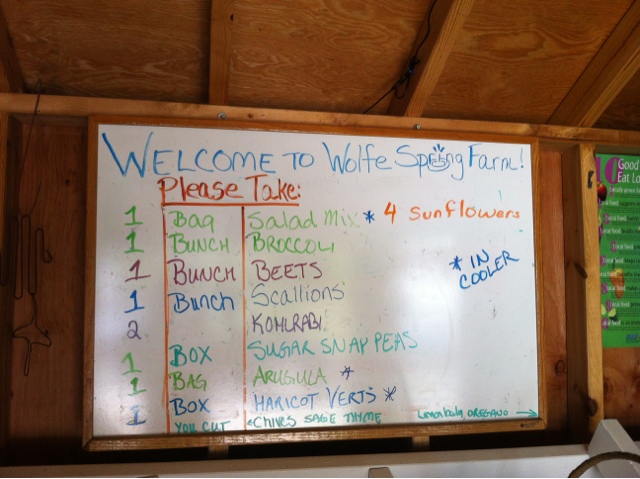 WELCOME TO Wolfe Spring Farm!
Please Take:
1 Bag Salad Mix * 4 Sunflowers
1 BUNCH BROCCOLI
1 BUNCH BEETS
* IN COOLER
1 Bunch Scallions
2 KOHLRABI
1 BOX SUGAR SNAP PEAS
1 BAG ARUGULA *
1 BOX HARICOT VERTS *
YOU CUT CHIVES SAGE THYME Lemon balm OREGANO →
Good
Eat Lo